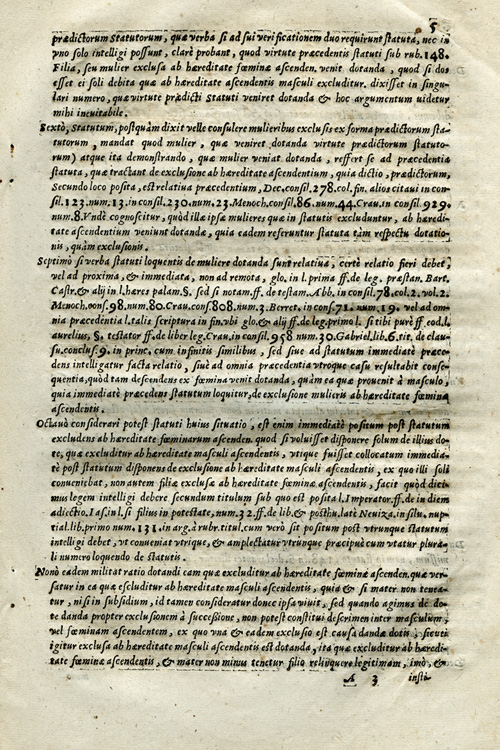 5
prædictorum Statutorum, quæ verba si ad sui verificationem duo requirunt statuta, nec in
vno solo intelligi possunt, clarè probant, quod virtute præcedentis statuti sub rub. 148.
Filia, seu mulier exclusa ab hæreditate fœminæ ascenden. venit dotanda, quod si dos
esset ei soli debita quæ ab hæreditate ascendentis masculi excluditur. dixisset in singu-
lari numero, quæ virtute prædicti Statuti veniret dotanda & hoc argumentum uidetur
mihi ineuitabile.
Sextò, Statutum, postquàm dixit velle consulere mulieribus exclusis ex forma prædictorum sta-
tutorum, mandat quod mulier, quæ veniret dotanda virtute prædictorum statuto-
rum) atque ita demonstrando, quæ mulier veniat dotanda, reffert se ad præcedentia
statuta, quæ tractant de exclusione ab hæreditate ascendentium, quia dictio, prædictorum,
Secundo loco posita, est relatiua præcedentium, Dec. consil. 278. col. fin. alios citaui in con-
sil. 123. num. 13. in consil. 230. num. 23. Menoch. consil. 86. num. 44. Crau. in consil. 929.
num. 8. Vndè cognoscitur, quòd illæ ipsæ mulieres quæ in statutis excluduntur, ab hæredi-
tate ascendentium veniunt dotandæ, quia eadem referuntur statuta tàm respectu dotatio-
nis, quàm exclusionis.
Septimò si verba statuti loquentis de muliere dotanda sunt relatiua, certè relatio fieri debet,
vel ad proxima, & immediata, non ad remota, glo. in l. prima ff. de leg. præstan. Bart.
Castr. & alij in l. hæres palam. §. sed si notam. ff. de testam. Abb. in consil. 78. col. 2. vol. 2.
Menoch. cons. 98. num. 80. Crau. cons. 808. num. 3. Berret. in cons. 71. num. 19. vel ad om-
nia præcedentia l. talis scriptura in fin. vbi glo. & alij ff. de leg. primo l. si tibi purè ff. eod. l.
aurelius, §. testator ff. de liber. leg. Crau. in consil. 958 num. 30. Gabriel. lib. 6. tit. de clau-
su. conclus. 9. in princ. cum infinitis similibus, sed siue ad statutum immediatè præce-
dens intelligatur facta relatio, siuè ad omnia præcedentia vtroque casu resultabit conse-
quentia, quòd tam descendens ex fœmina venit dotanda, quàm ea quæ prouenit à masculo,
quia immediatè præcedens statutum loquitur, de exclusione mulieris ab hæreditate fœminæ
ascendentis.
Octauò considerari potest statuti huius situatio, est enim immediatè positum post statutum
excludens ab hæreditate fœminarum ascenden. quod si voluisset disponere solum de illius do-
te, quæ excluditur ab hæreditate masculi ascendentis, vtique fuisset collocatum immedia-
tè post statutum disponens de exclusione ab hæreditate masculi ascendentis, ex quo illi soli
conueniebat, non autem filiæ exclusæ ab hæreditate fœminæ ascendentis, facit quòd dici-
mus legem intelligi debere secundum titulum sub quo est posita l. Imperator. ff. de in diem
adiectio. Ias. in l. si filius in potestate, num. 32. ff. de lib. & posthu. late Neuiza. in silu. nup-
tial. lib. primo num. 131. in arg. à rubr. titul. cum verò sit positum post vtrunque statutum
intelligi debet, vt conueniat vtrique, & amplectatur vtrunque præcipuè cum vtatur plura-
li numero loquendo de statutis.
Nonò eadem militat ratio dotandi eam quæ excluditur ab hæreditate fœminæ ascenden. quæ ver-
satur in ea quæ escluditur ab hæreditate masculi ascendentis, quia & si mater non tenea-
tur, nisi in subsidium, id tamen consideratur donec ipsa viuit, sed quando agimus de do-
te danda propter exclusionem à successione, non potest constitui descrimen inter masculum,
vel fœminam ascendentem, ex quo vna & eadem exclusio est causa dandæ dotis, sicuti
igitur exclusa ab hæreditate masculi ascendentis est dotanda, ita quæ excluditur ab hæredi-
tate fœminæ ascendentis, & mater non minus tenetur filiæ relinquere legitimam, imò, &
A 3 insti-